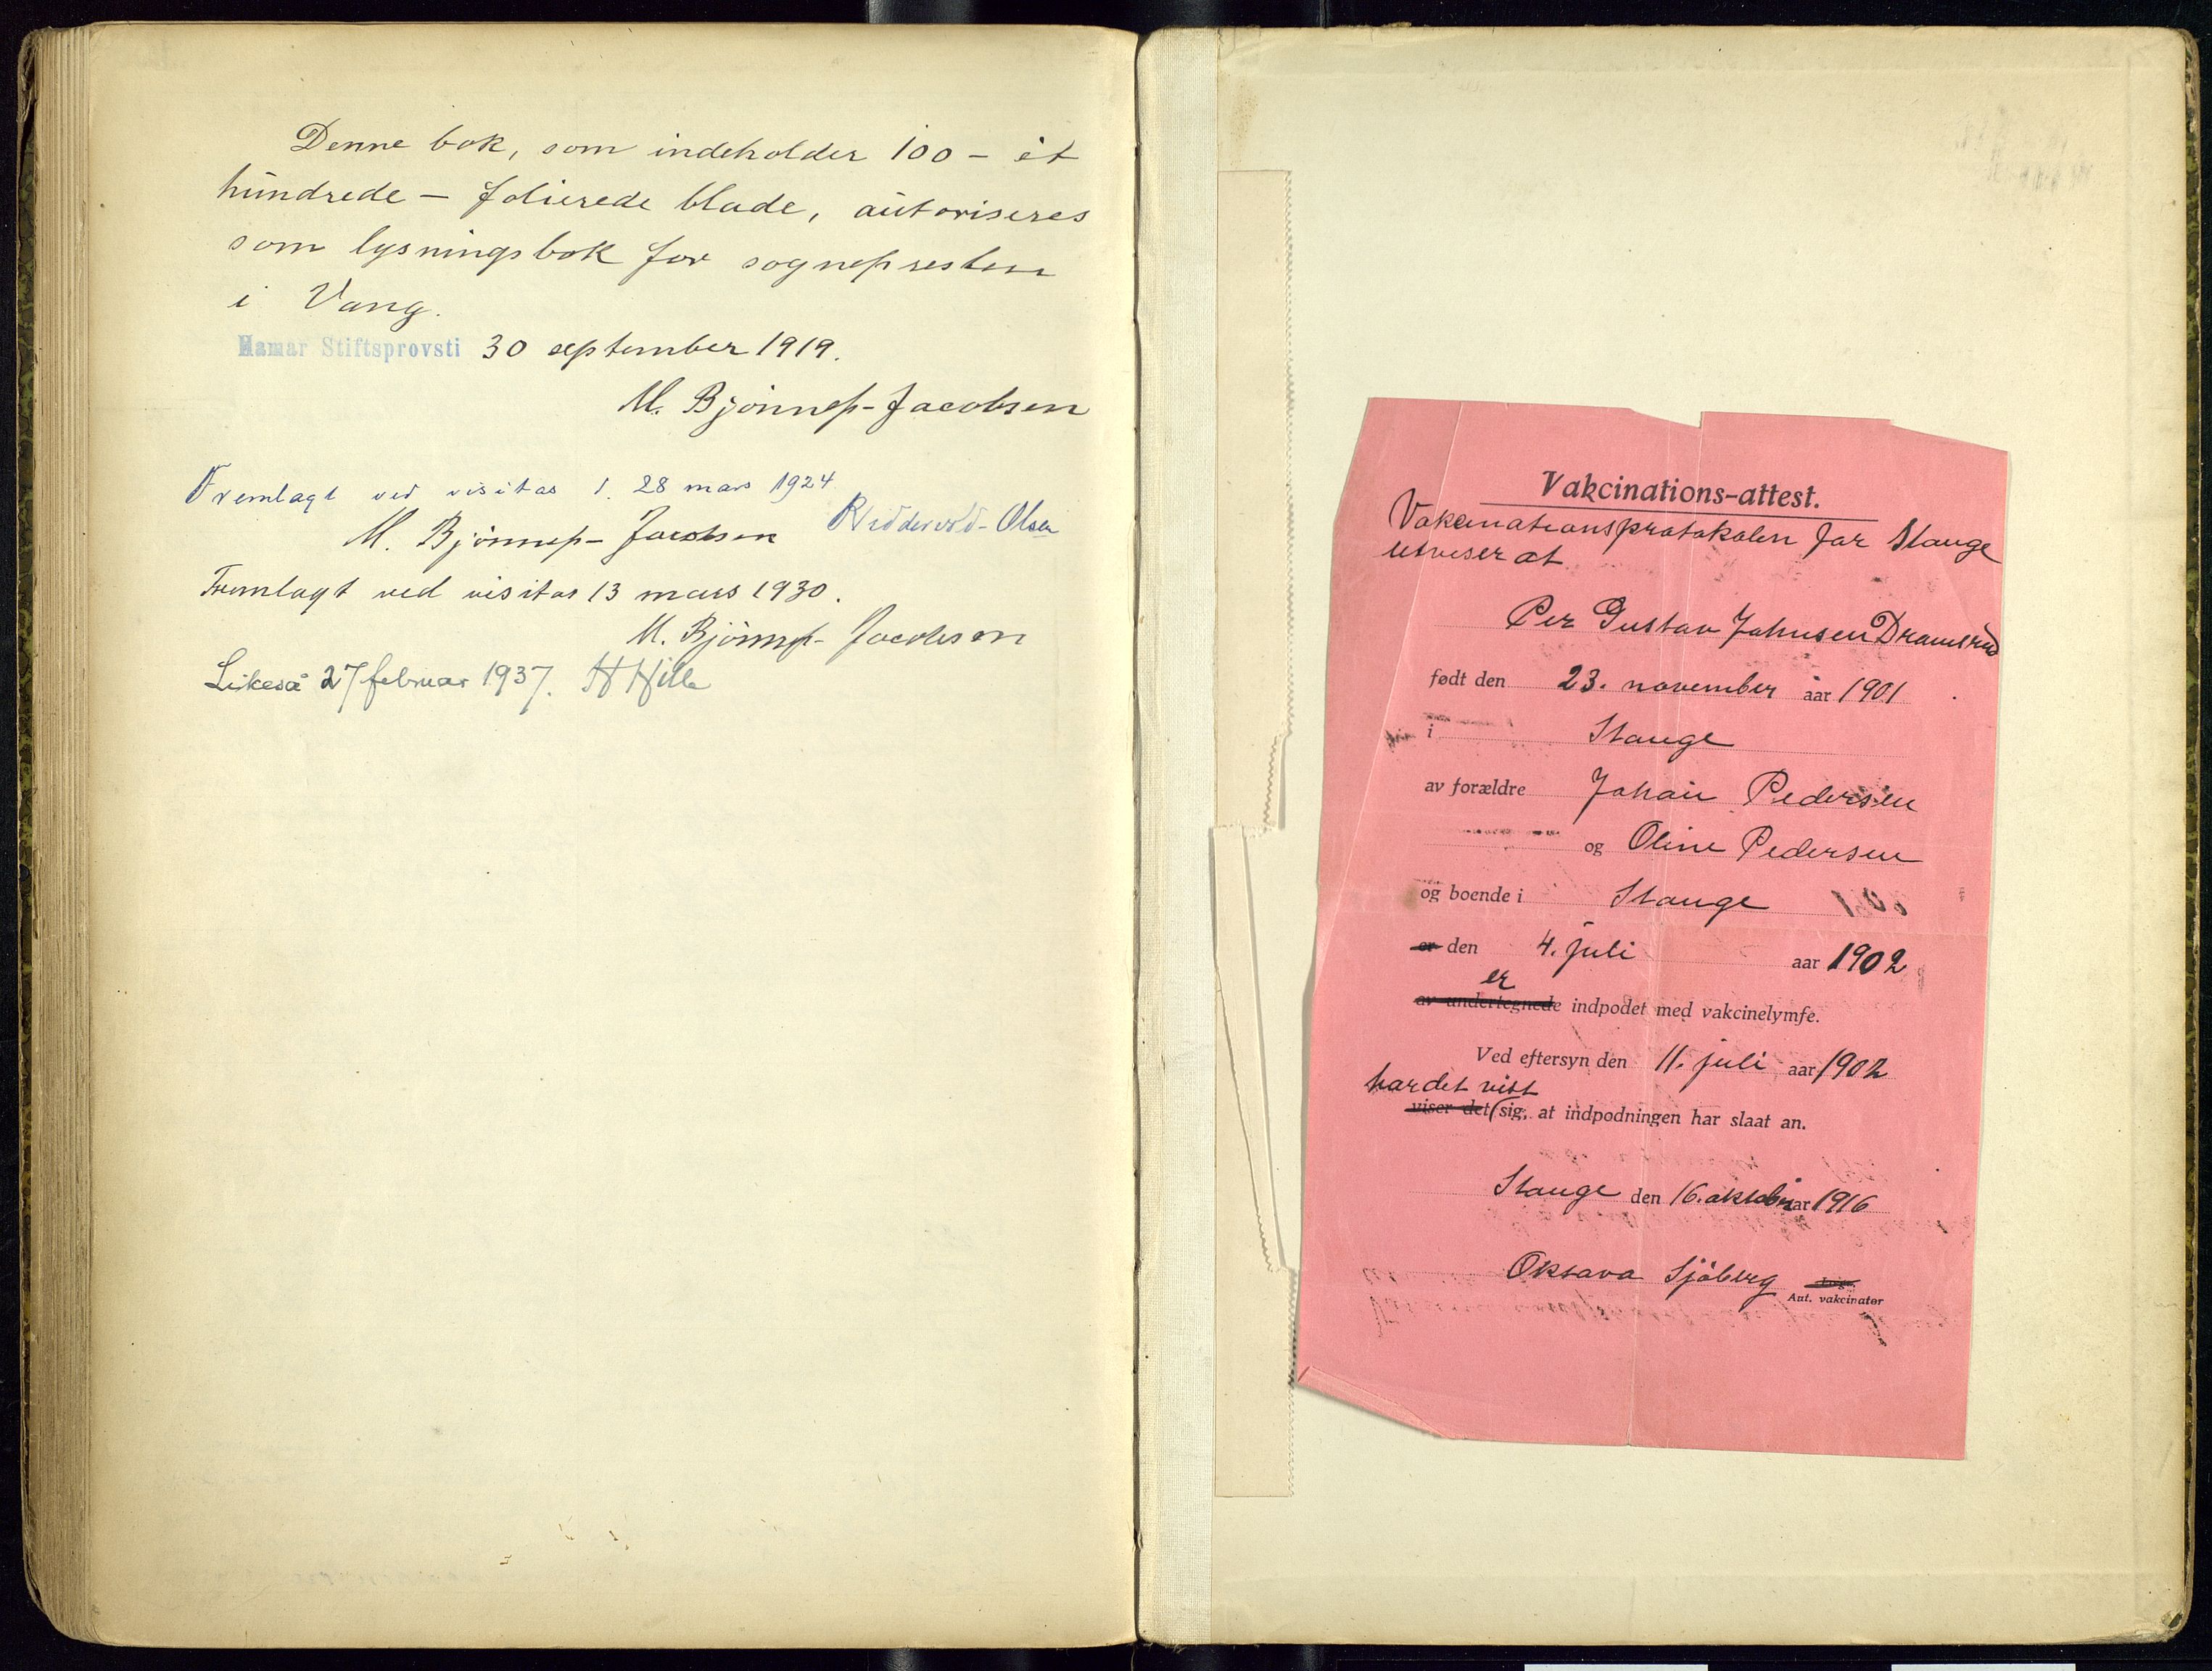 Denne bok, som indeholder 100 – et
hundrede – folierede blade, autoriseres
som lysningsbok for sognepresten
i Vang.
Hamar Stiftsprovsti 30 september 1919.
M. Bjønnes-Jacobsen
Fremlagt ved visitas 1. 28 mars 1924
M. Bjønnes-Jacobsen Riddervold-Olsen
Fremlagt ved visitas 13 mars 1930.
M. Bjønnes-Jacobsen
Likeså 27 februar 1937. H Hille
Vakcinations-attest.
Vakcinationsprotokolen for Stange
utviser at
Per Gustav Johnsen Dramsrud
født den 23. november aar 1901
i Stange
av forældre Johan Pedersen
og Oline Pedersen
og boende i Stange
er den 4. juli aar 1902
er
av undertegnede indpodet med vakcinelymfe.
Ved eftersyn den 11. juli aar 1902
har det vist
viser det sig, at indpodningen har slaat an.
Stange den 16. oktober aar 1916
Oksava Sjøberg
Aut. vakcinatør